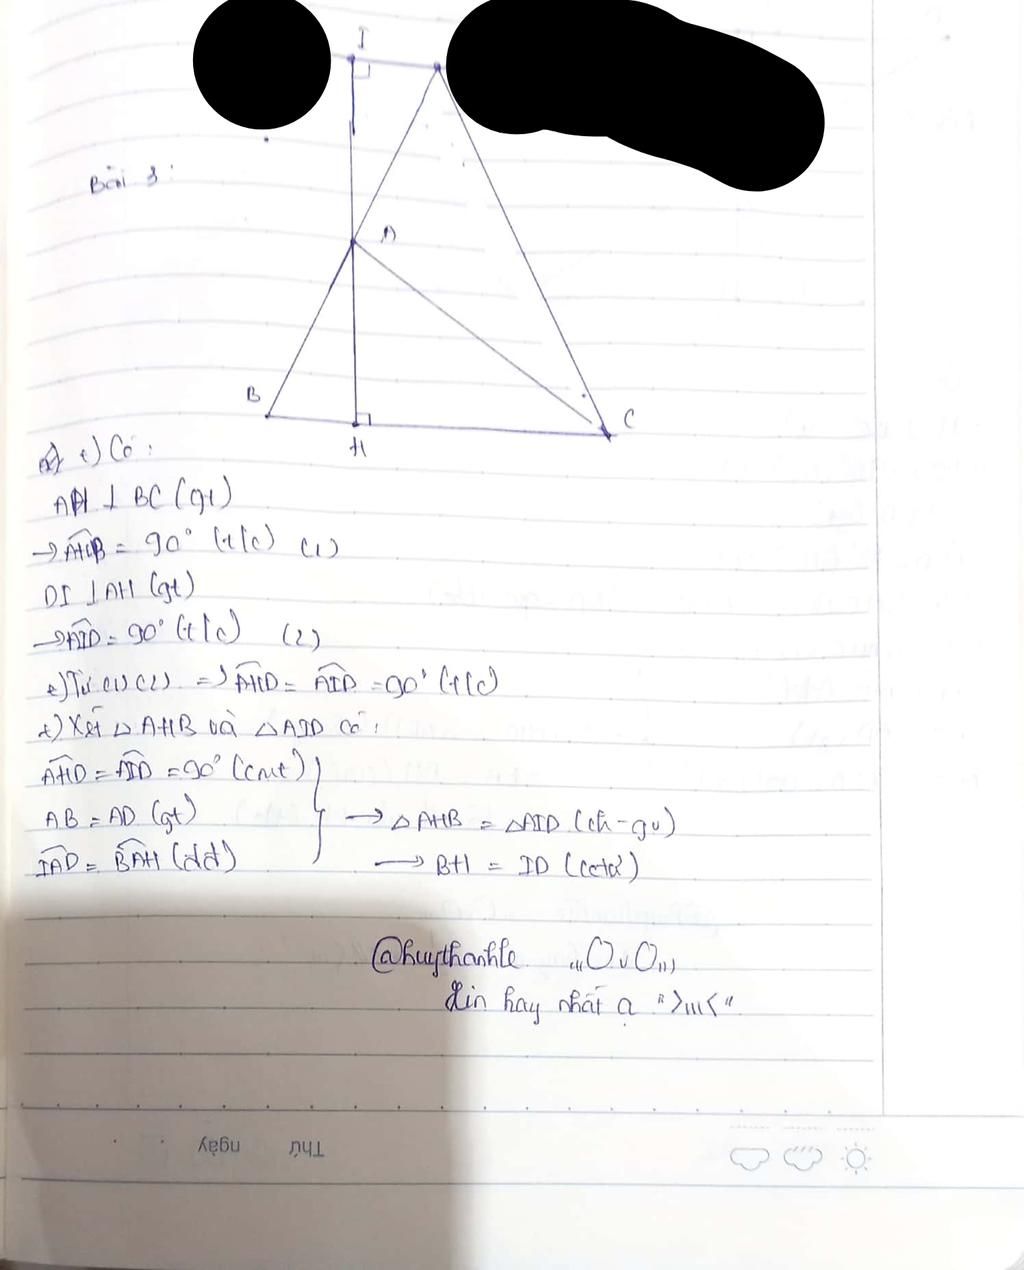 I
Bài 3:
A
B
C
H
a) +) Có:
AH ⊥ BC (gt)
→ AHB = 90° (t/c) (1)
DI ⊥ AH (gt)
→ AID = 90° (t/c) (2)
+) Từ (1) (2) => AHD = AID = 90° (t/c)
+) Xét △ AHB và △ AID có:
AHD = AID = 90° (cmt)
AB = AD (gt)
→ △ AHB = △AID (ch-gv)
IAD = BAH (dd)
→ BH = ID (cctư)
@huythanhle ,,,OvO,,,
Xin hay nhất ạ ">,,,<"
Thứ ngày